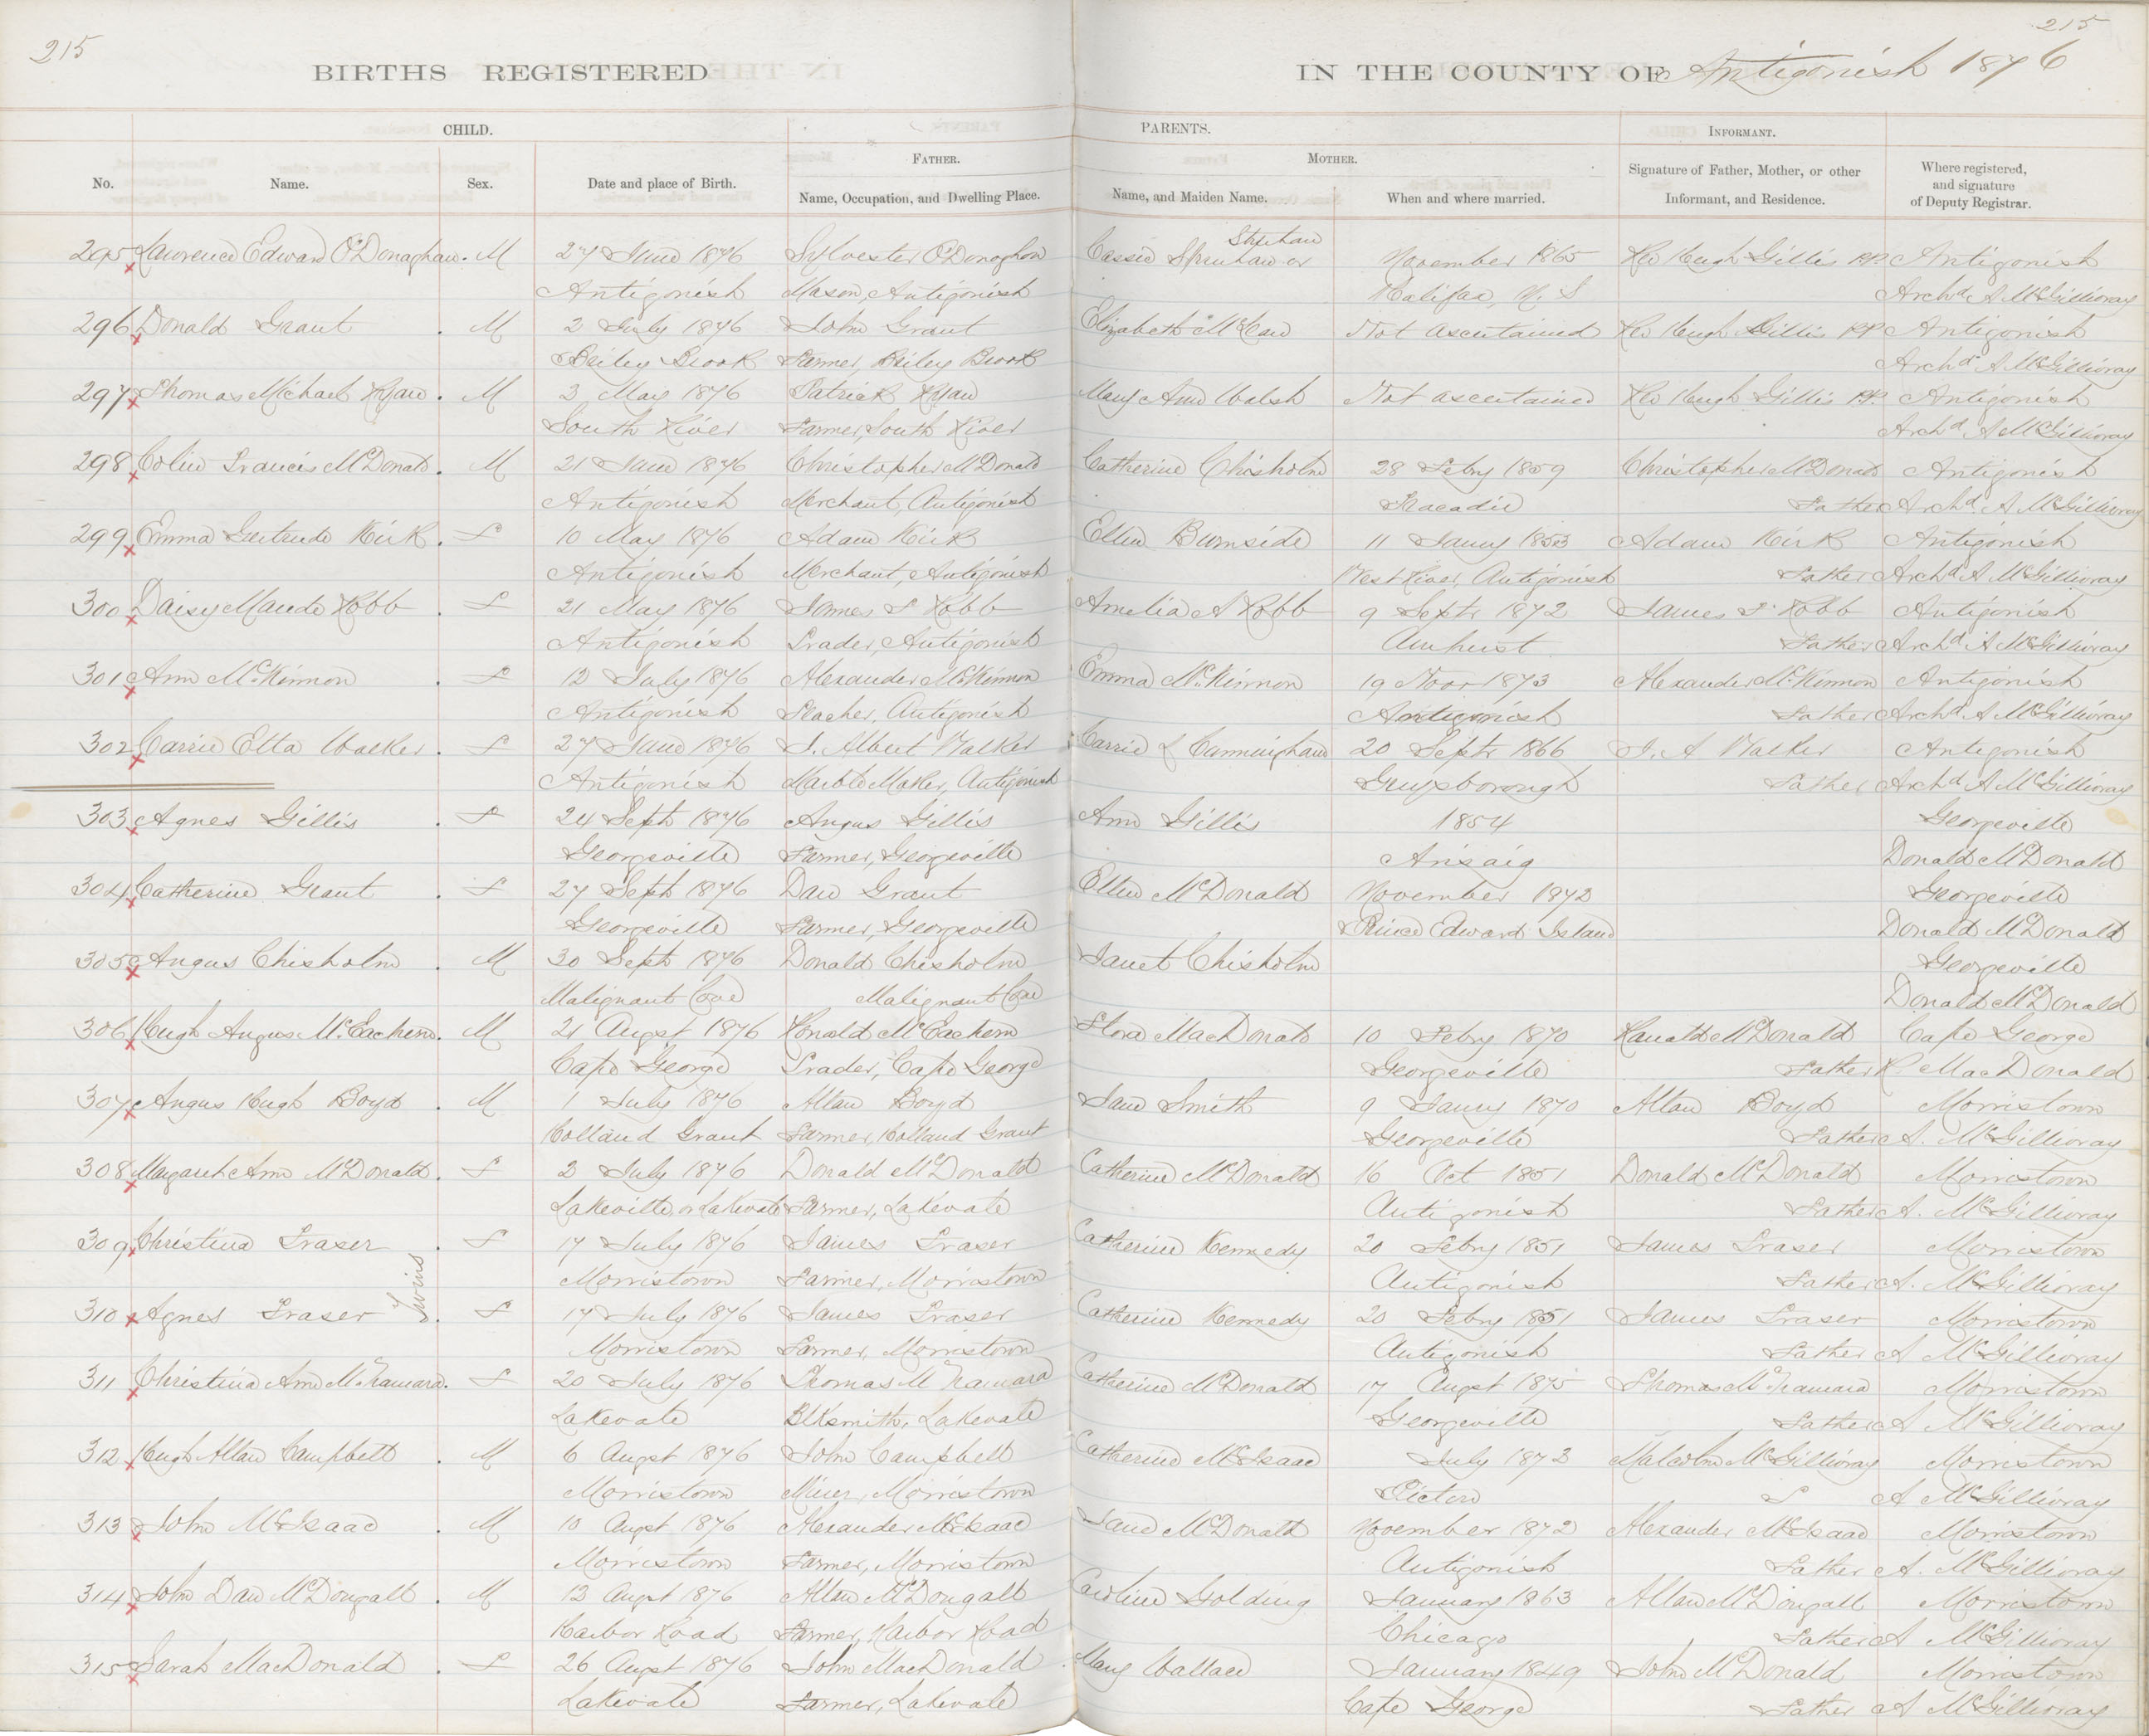 215
215
BIRTHS REGISTERED IN THE COUNTY OF Antigonish 1876
CHILD. PARENTS. INFORMANT.
FATHER. MOTHER.
No. Name. Sex. Date and place of Birth. Name, Occupation, and Dwelling Place. Name, and Maiden Name. When and where married. Signature of Father, Mother, or other Informant, and Residence. Where registered, and signature of Deputy Registrar.
295 Lawrence Edward O'Donaghan. M 27 June 1876 Sylvester O'Donoghon Cassie or Strehan November 1865 Rev Hugh Gillis P.P. Antigonish
Antigonish Mason, Antigonish Halifax, N. S Archd. A McGillivray
296 Donald Grant . M 2 July 1876 John Grant Elizabeth McLean Not ascertained Rev Hugh Gillis P.P. Antigonish
Briley Brook Farmer, Briley Brook Archd. A McGillivray
297 Thomas Michael Ryan . M 3 May 1876 Patrick Ryan Mary Ann Walsh Not ascertained Rev Hugh Gillis P.P. Antigonish
South River Farmer, South River Archd. A McGillivray
298 Colin Francis McDonald. M 21 June 1876 Christopher McDonald Catherine Chisholm 28 Feby 1859 Christopher McDonald Antigonish
Antigonish Merchant, Antigonish Tracadie Father Archd. A McGillivray
299 Emma Gertrude Kirk . F 10 May 1876 Adam Kirk Ellen Burnside 11 Jany 1853 Adam Kirk Antigonish
Antigonish Merchant, Antigonish West River, Antigonish Father Archd. A McGillivray
300 Daisy Maude Robb . F 21 May 1876 James F Robb Amelia A Robb 9 Septr 1872 James F Robb Antigonish
Antigonish Trader, Antigonish Amherst Father Archd. A McGillivray
301 Ann McKinnon . F 12 July 1876 Alexander McKinnon Emma McKinnon 19 Novr 1873 Alexander McKinnon Antigonish
Antigonish Teacher, Antigonish Antigonish Father Archd. A McGillivray
302 Carrie Etta Walker . F 27 June 1876 J. Albert Walker Carrie L Cunningham 20 Septr 1866 J. A Walker Antigonish
Antigonish Marble Maker, Antigonish Guysborough Father Archd. A McGillivray
303 Agnes Gillis . F 24 Sept 1876 Angus Gillis Ann Gillis 1854 Georgeville
Georgeville Farmer, Georgeville Arisaig Donald McDonald
304 Catherine Grant . F 27 Sept 1876 Dan Grant Ellen McDonald November 1972 Georgeville
Georgeville Farmer, Georgeville Prince Edward Island Donald McDonald
305 Angus Chisholm . M 30 Sept 1876 Donald Chisholm Janet Chisholm Georgeville
Malignant Cove Malignant Cove Donald McDonald
306 Hugh Angus McEachern. M 21 Augst 1876 Ronald McEachern Flora MacDonald 10 Feby 1870 Ranald McDonald Cape George
Cape George Trader, Cape George Georgeville Father R. MacDonald
307 Angus Hugh Boyd . M 1 July 1876 Allan Boyd Jane Smith 9 Jany 1870 Allan Boyd Morristown
Holland Grant Farmer, Holland Grant Georgeville Father A. McGillivray
308 Margaret Ann McDonald . F 2 July 1876 Donald McDonald Catherine McDonald 16 Oct 1851 Donald McDonald Morristown
Lakeville or Lakevale Farmer, Lakevale Antigonish Father A. McGillivray
309 Christina Fraser . F 17 July 1876 James Fraser Catherine Kennedy 20 Feby 1851 James Fraser Morristown
Twins
Morristown Farmer, Morristown Antigonish Father A. McGillivray
310 Agnes Fraser . F 17 July 1876 James Fraser Catherine Kennedy 20 Feby 1851 James Fraser Morristown
Morristown Farmer, Morristown Antigonish Father A McGillivray
311 Christina Ann McNamara. F 20 July 1876 Thomas McNamara Catherine McDonald 17 Augst 1875 Thomas McNamara Morristown
Lakevale Blksmith, Lakevale Georgeville Father A McGillivray
312 Hugh Allan Campbell . M 6 Augst 1876 John Campbell Catherine McIsaac July 1873 Malcolm McGillivray Morristown
Morristown Miner, Morristown Pictou A McGillivray
313 John McIsaac . M 10 Augst 1876 Alexander McIsaac Jane McDonald November 1872 Alexander McIsaac Morristown
Morristown Farmer, Morristown Antigonish Father A. McGillivray
314 John Dan McDougall . M 12 Augst 1876 Allan McDougall Caroline Golding January 1863 Allan McDougall Morristown
Harbor Road Farmer, Harbor Road Chicago Father A McGillivray
315 Sarah MacDonald . F 26 Augst 1876 John MacDonald Mary Wallace January 1849 John McDonald Morristown
Lakevale Farmer, Lakevale Cape George Father A McGillivray